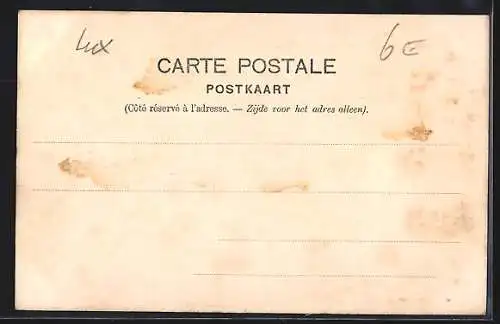 Lux 6 €
CARTE POSTALE
POSTKAART
(Côté réservé à l'adresse. — Zijde voor het adres alleen).